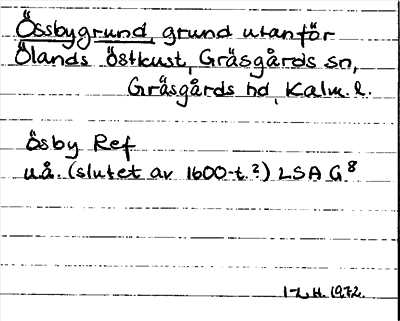 Össbygrund, grund utanför
Ölands östkust, Gräsgårds sn,
Gräsgårds hd, Kalm. l.
Ösby Ref
u.å. (slutet av 1600-t.?) LSA G8
1972.